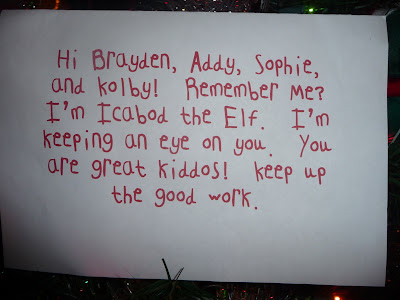 Hi Brayden, Addy, Sophie,
and Kolby! Remember Me?
I'm Icabod the Elf. I'm
keeping an eye on you. You
are great kiddos! keep up
the good work.